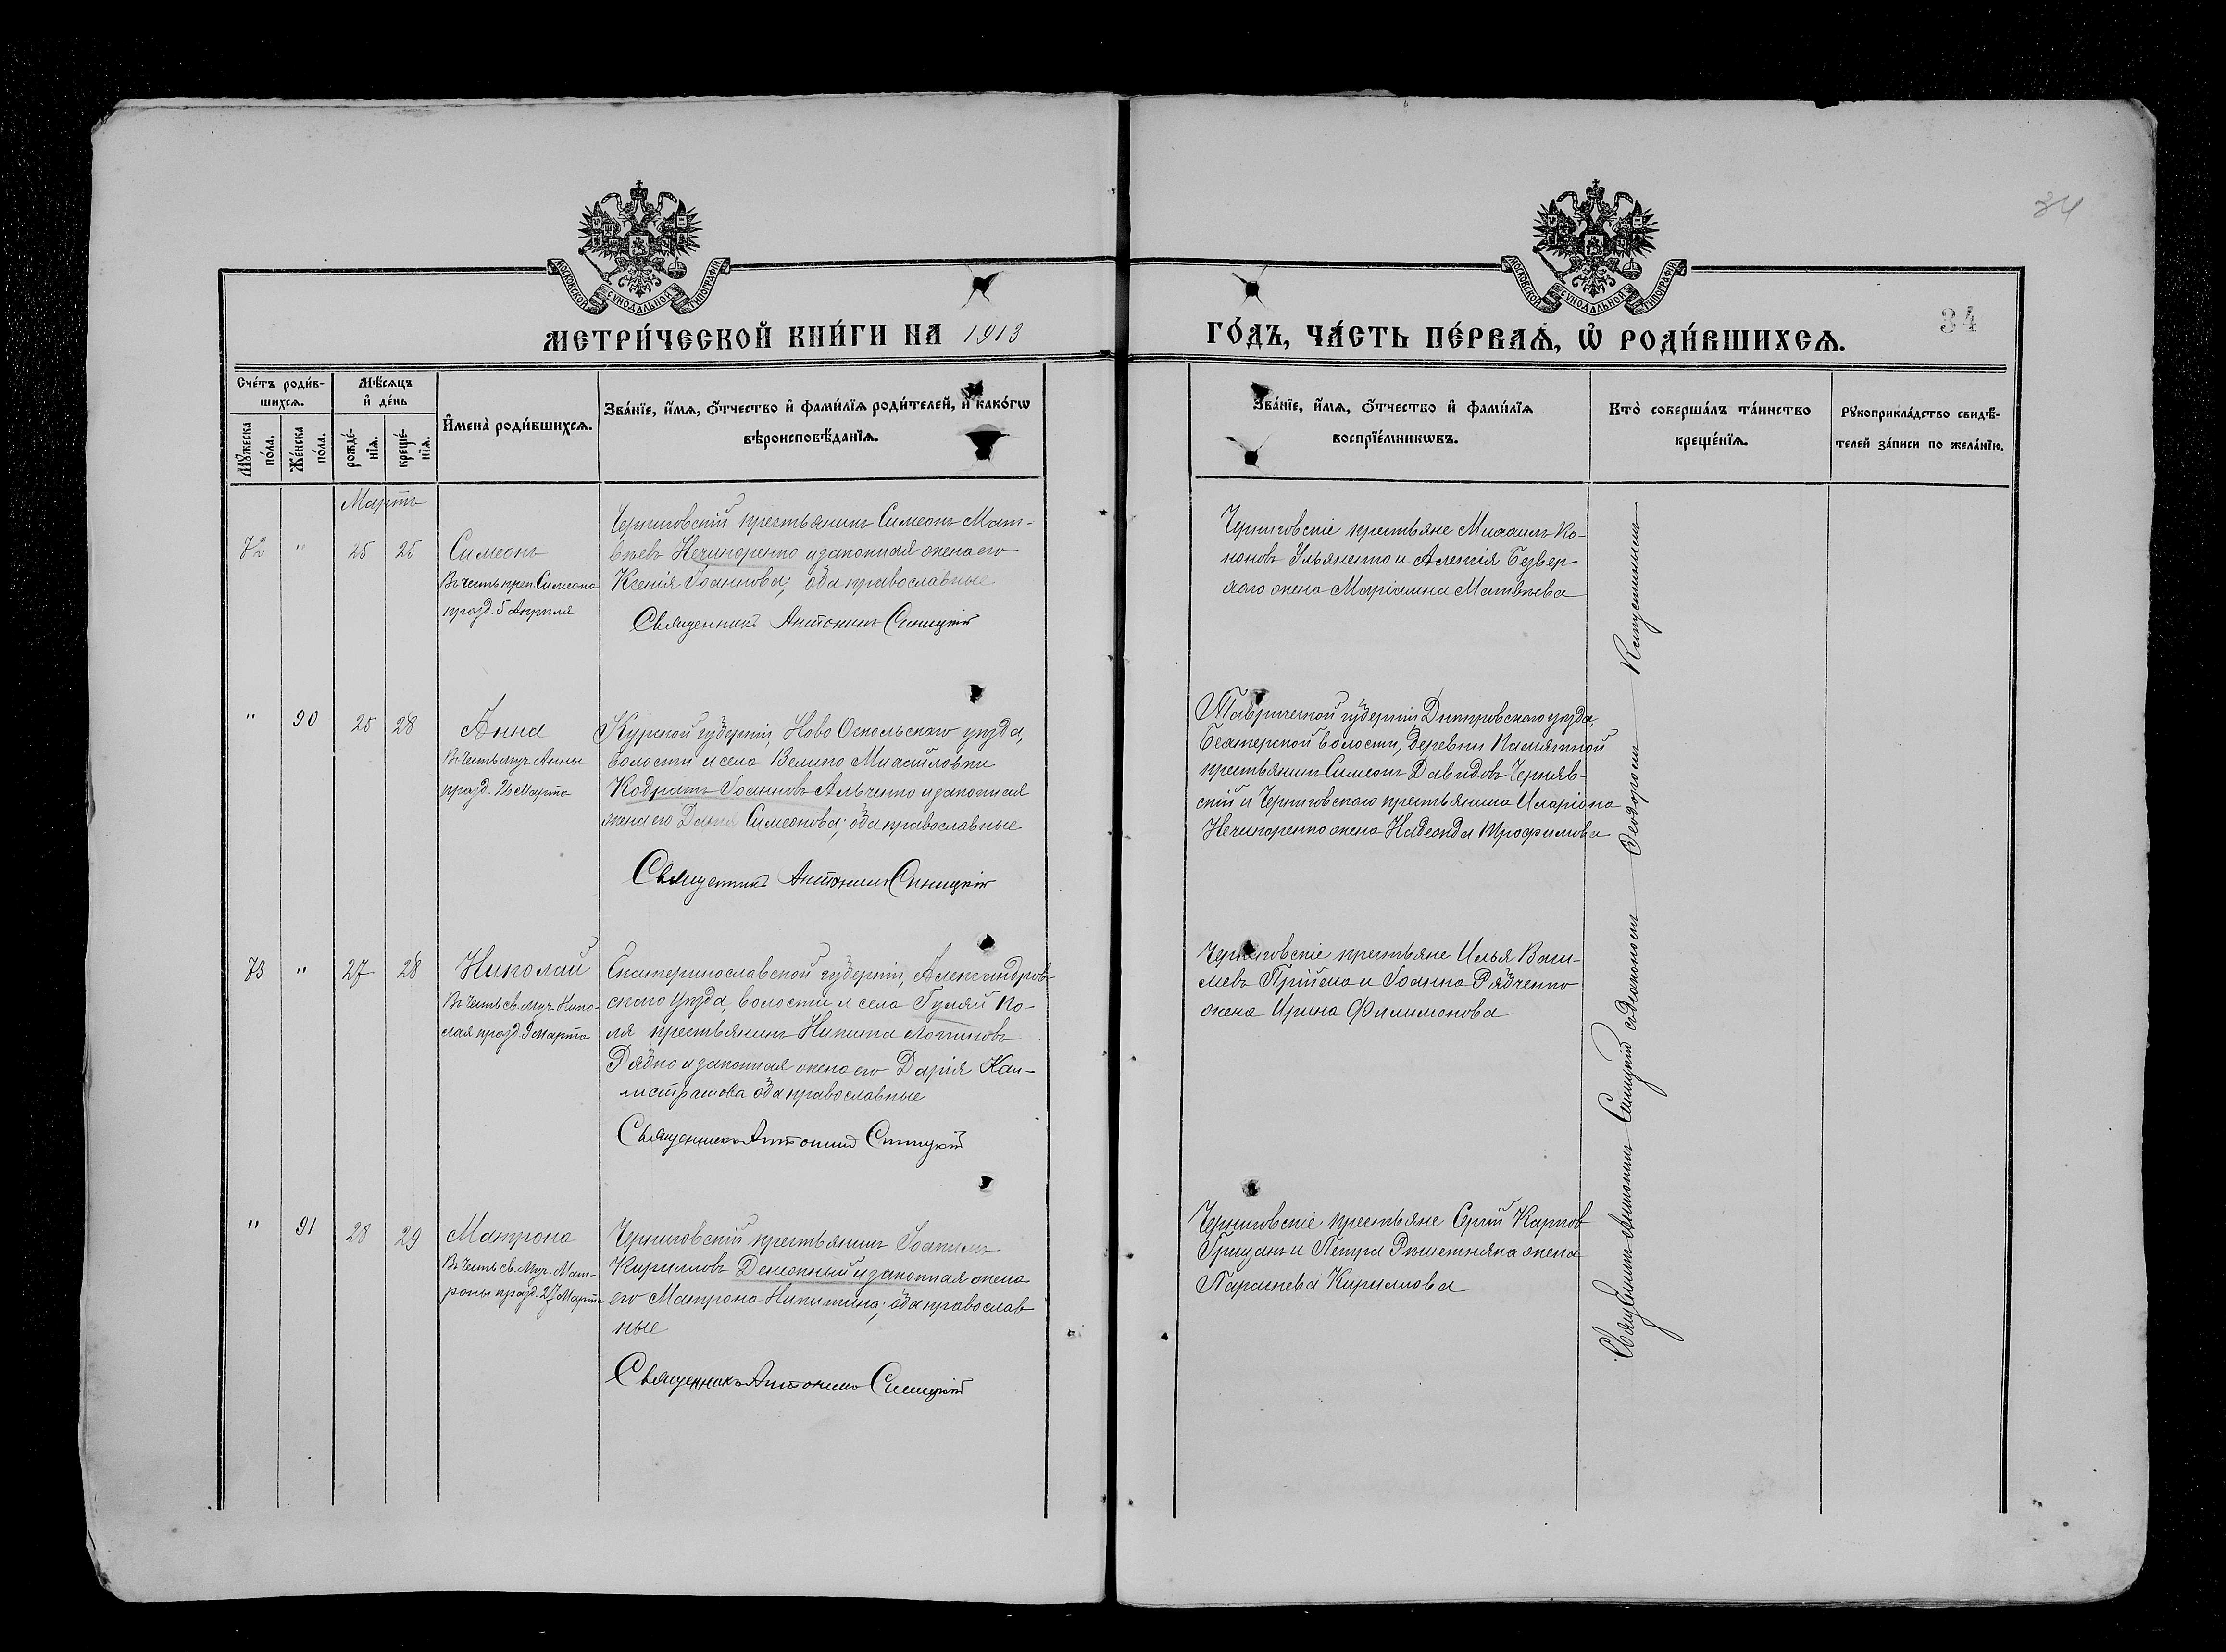 34
МОСКОВСКОЙ СѴНОДАЛЬНОЙ ТИПОГРАФІИ
МОСКОВСКОЙ СѴНОДАЛЬНОЙ ТИПОГРАФІИ
34
МЕТРИ́ЧЕСКОЙ КНИ́ГИ НА 1913
ГО́ДЪ, ЧА́СТЬ ПЕ́РВАѦ, Ѡ РОДИ́ВШИХСѦ.
Сче́тъ роди́в-
шихсѧ.
Мѣ́сѧцъ
и҆ де́нь
Мꙋжеска
по́ла.
Же́нска
по́ла.
рожде́-
нїѧ.
креще́-
нїѧ.
И҆мена̀ роди́вшихсѧ.
Зва́нїе, и҆́мѧ, о҆́тчество и҆ фами́лїѧ роди́телей, и҆ како́гѡ
вѣроисповѣ́данїѧ.
Зва́нїе, и҆́мѧ, о҆́тчество и҆ фами́лїѧ
воспрїе́мникѡвъ.
Кто̀ соверша́лъ та́инство
креще́нїѧ.
Рꙋкоприкла́дство свидѣ́-
телей за́писи по жела́нїю.
Мартъ
72 " 25 25 Симеонъ
Въ честь преп. Симеона
празд. 5 Апрѣля
Черниговскій крестьянинъ Симеонъ Мат-
вѣевъ Нечипоренко и законная жена его
Ксенія Іоаннова; оба православные
Священникъ Антонинъ Синицкій
Черниговскіе крестьяне Михаилъ Ко-
ноновъ Ульяненко и Алексія Безвер-
хаго жена Маріамна Матвѣева
" 90 25 28 Анна
Въ честь муч. Анны
празд. 26 Марта
Курской губерніи, Ново Оскольскаго уѣзда,
волости и села Велико Михайловки
Кодратъ Іоанновъ Альченко и законная
жена его Симеонова; оба православные
Священникъ Антонинъ Синицкій
Таврической губерніи Днѣпровскаго уѣзда,
волости, деревни
крестьянинъ Симеонъ Давидовъ Черняв-
скій и Черниговскаго крестьянина Иларіона
Нечипоренко жена Надежда Трофимова
73 " 27 28 Николай
Въ честь св. муч. Нико-
лая празд. 9 Марта
Екатеринославской губерніи, Александров-
скаго уѣзда, волости и села Гуляй По-
ля крестьянинъ Никита Логгиновъ
Рябко и законная жена его Дарія Кал-
листратова оба православные
Священникъ Антонинъ Синицкій
Черниговскіе крестьяне Илья Васи-
льевъ Прійма и Іоанна Рябченко
жена Ирина Филимонова
" 91 28 29 Матрона
Въ честь св. муч. Мат-
роны празд. 27 Марта
Черниговскій крестьянинъ
Кирилловъ и законная жена
его Матрона Никитина; оба православ
ные
Священникъ Антонинъ Синицкій
Черниговскіе крестьяне Сергій Карпов
Грицанъ и Петра Рѣшетняка жена
Параскева Кириллова
Священникъ Антонинъ Синицкій съ діакономъ Ѳеодоромъ